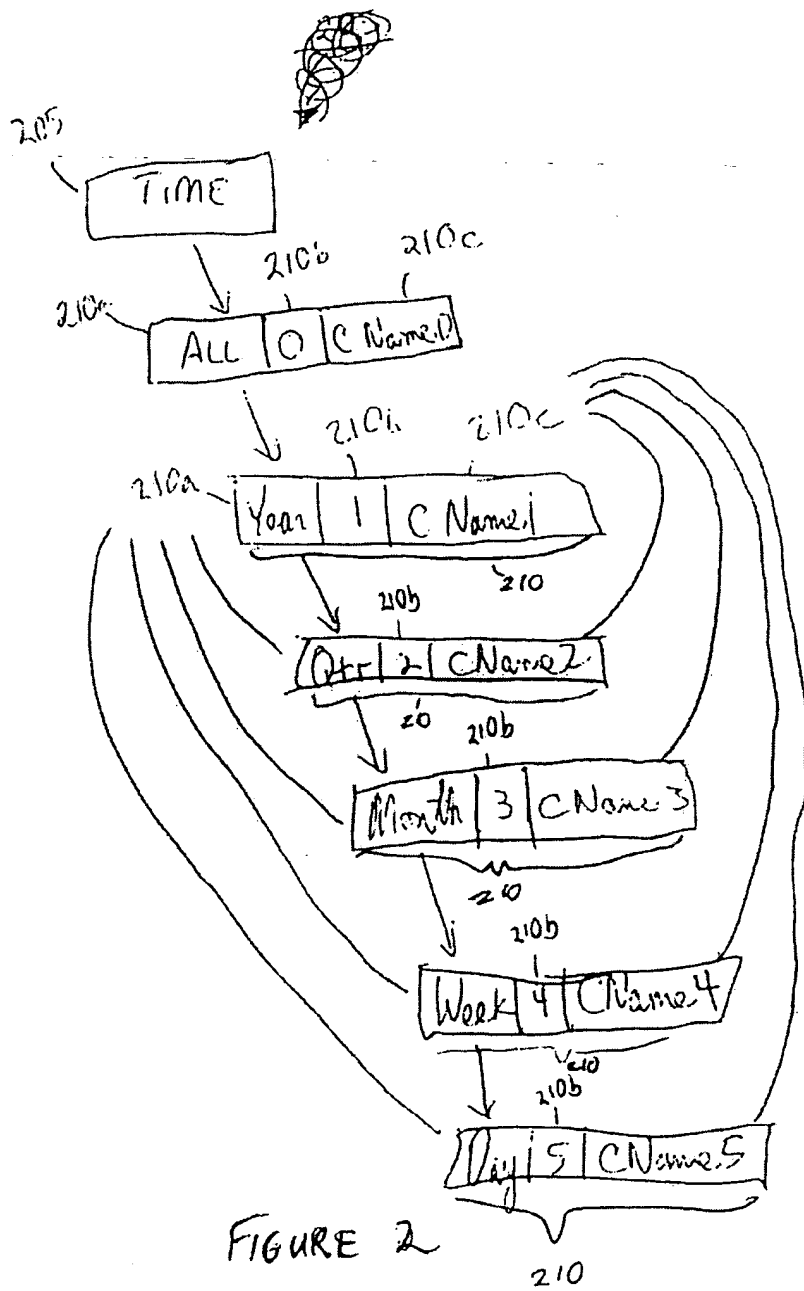 205
TIME
210b 210c
ALL 0 C Name.0
210b 210c
210a Year 1 C Name.1
210
210b
Qtr 2 CName2
210
210b
Month 3 CName.3
210
210b
Week 4 CName.4
210
210b
Day 5 CName.5
FIGURE 2
210